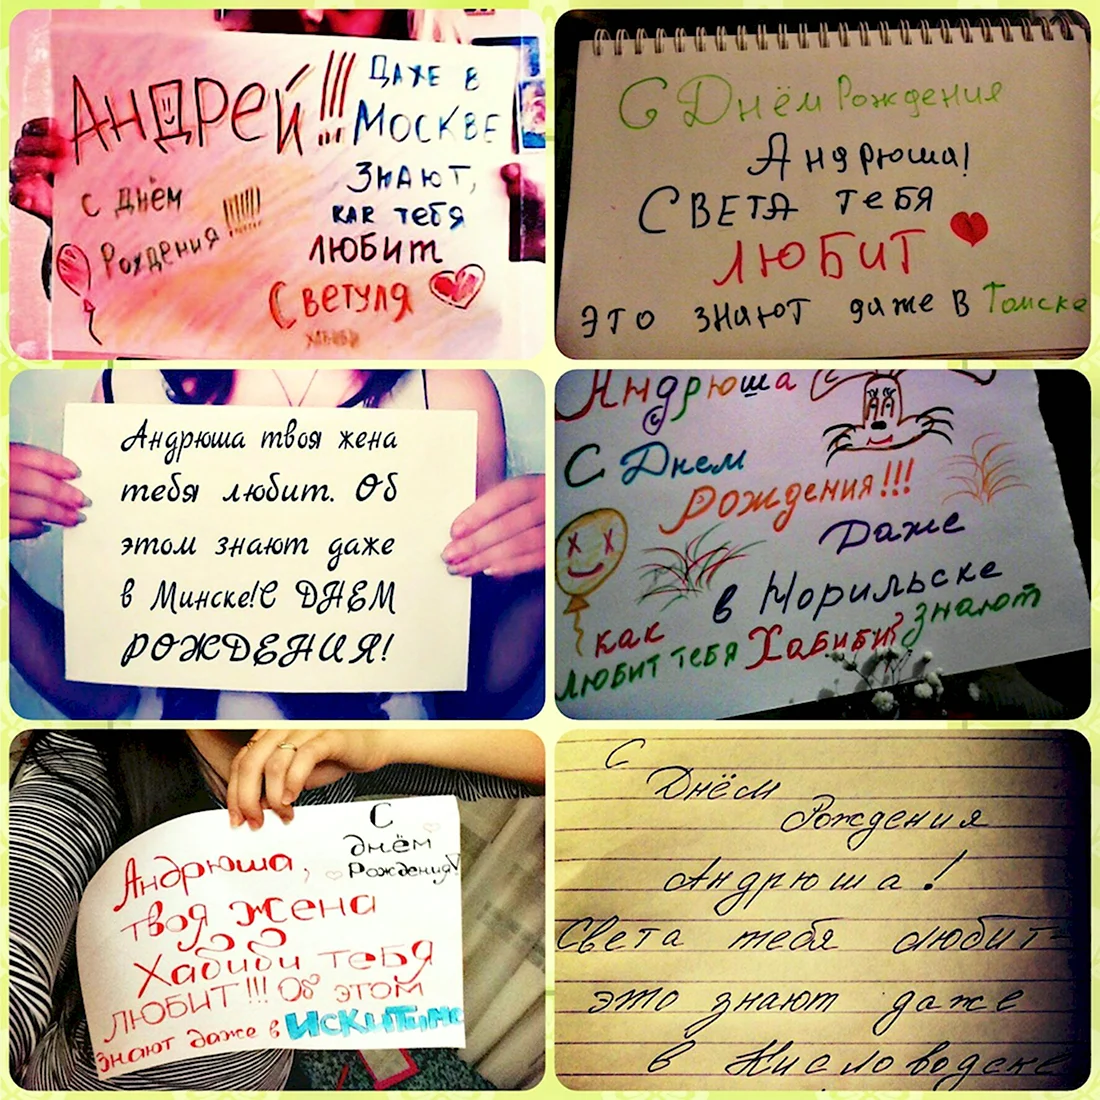 АНДРЕЙ!!!
ДАЖЕ В
МОСКВЕ
ЗНАЮТ,
КАК ТЕБЯ
ЛЮБИТ
Светуля
ХАБИБИ
С ДНЁМ
РОЖДЕНИЯ !!!!!!!
С Днём Рождения
Андрюша!
СВЕТА ТЕБЯ
ЛЮБИТ
ЭТО знают даже в Томске
Андрюша твоя жена
тебя любит. Об
этом знают даже
в Минске!С ДНЕМ
РОЖДЕНИЯ!
Андрюша
С Днем
Рождения!!!
Даже
в Норильске
как знают
любит тебя Хабиби?
С
днём
Рождения!
Андрюша,
твоя жена
Хабиби тебя
ЛЮБИТ!!! Об этом
знают даже в ИСКИТИМе
С
Днём
Рождения
Андрюша!
Света тебя любит-
это знают даже
в Кисловодске